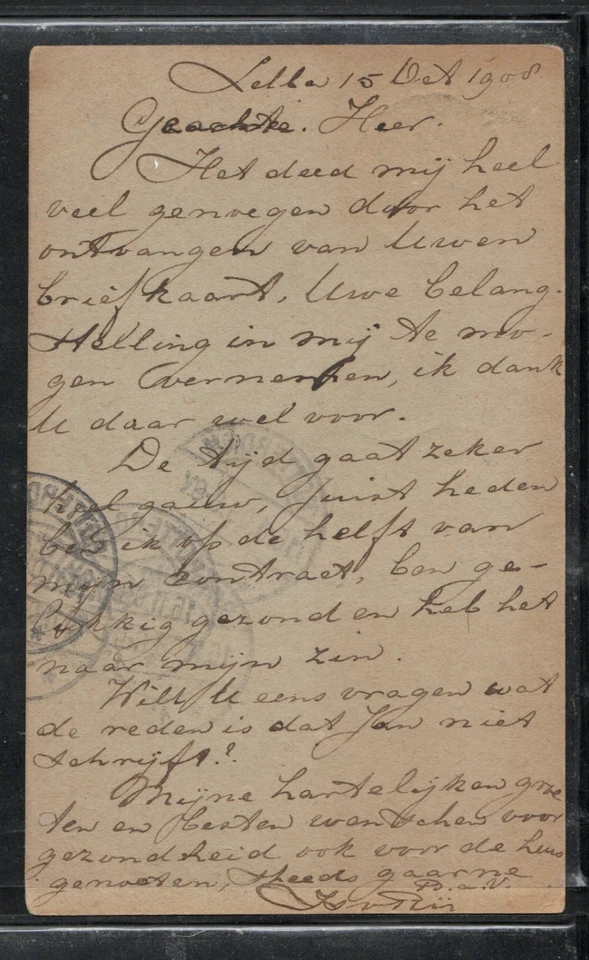 Lelle 15 Oct 1908.
Geachte. Heer.
Het deed mij heel
veel genoegen door het
ontvangen van Uwen
briefkaart, Uwe belang-
stelling in mij te mo-
gen vernemen, ik dank
U daar wel voor.
De tijd gaat zeker
heel gauw, juist heden
ben ik op de helft van
mijn contract, ben ge-
lukkig gezond en heb het
naar mijn zin.
Wilt U eens vragen wat
de reden is dat Jan niet
schrijft?
Mijne hartelijken groe
ten en besten wenschen voor
gezondheid ook voor de huis
genooten, steeds gaarne